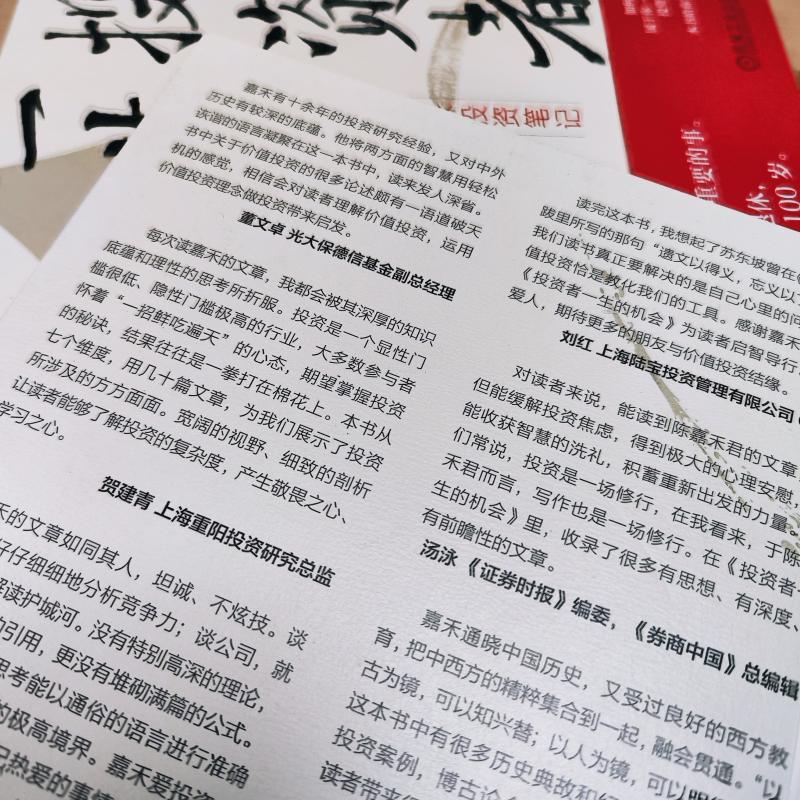 投资者
投资笔记
重要的事。
退休，
100 岁。
嘉禾有十余年的投资研究经验，又对中外
历史有较深的底蕴。他将两方面的智慧用轻松
诙谐的语言凝聚在这一本书中，读来发人深省。
书中关于价值投资的很多论述颇有一语道破天
机的感觉，相信会对读者理解价值投资，运用
价值投资理念做投资带来启发。
董文卓 光大保德信基金副总经理
每次读嘉禾的文章，我都会被其深厚的知识
底蕴和理性的思考所折服。投资是一个显性门
槛很低、隐性门槛极高的行业，大多数参与者
怀着“一招鲜吃遍天”的心态，期望掌握投资
的秘诀，结果往往是一拳打在棉花上。本书从
七个维度，用几十篇文章，为我们展示了投资
所涉及的方方面面。宽阔的视野、细致的剖析
让读者能够了解投资的复杂度，产生敬畏之心、
学习之心。
贺建青 上海重阳投资研究总监
的文章如同其人，坦诚、不炫技。谈
仔仔细细地分析竞争力；谈公司，就
解读护城河。没有特别高深的理论，
的引用，更没有堆砌满篇的公式。
思考能以通俗的语言进行准确
的极高境界。嘉禾爱投资
热爱的事情
读完这本书，我想起了苏东坡曾在
陂里所写的那句“遗文以得义，忘义以
我们读书真正要解决的是自己心里的问
值投资恰是教化我们的工具。感谢嘉禾
《投资者一生的机会》为读者启智导行，
爱人，期待更多的朋友与价值投资结缘。
刘红 上海陆宝投资管理有限公司
对读者来说，能读到陈嘉禾君的文章，
但能缓解投资焦虑，得到极大的心理安慰，
能收获智慧的洗礼，积蓄重新出发的力量。
们常说，投资是一场修行，在我看来，于陈
禾君而言，写作也是一场修行。在《投资者一
生的机会》里，收录了很多有思想、有深度、
有前瞻性的文章。
汤泳 《证券时报》编委，《券商中国》总编辑
嘉禾通晓中国历史，又受过良好的西方教
育，把中西方的精粹集合到一起，融会贯通。“以
古为镜，可以知兴替；以人为镜，可以明
这本书中有很多历史典故和
投资案例，博古论
读者带来